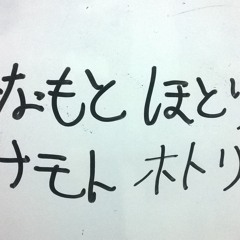 なもと ほとり
ナモト ホトリ